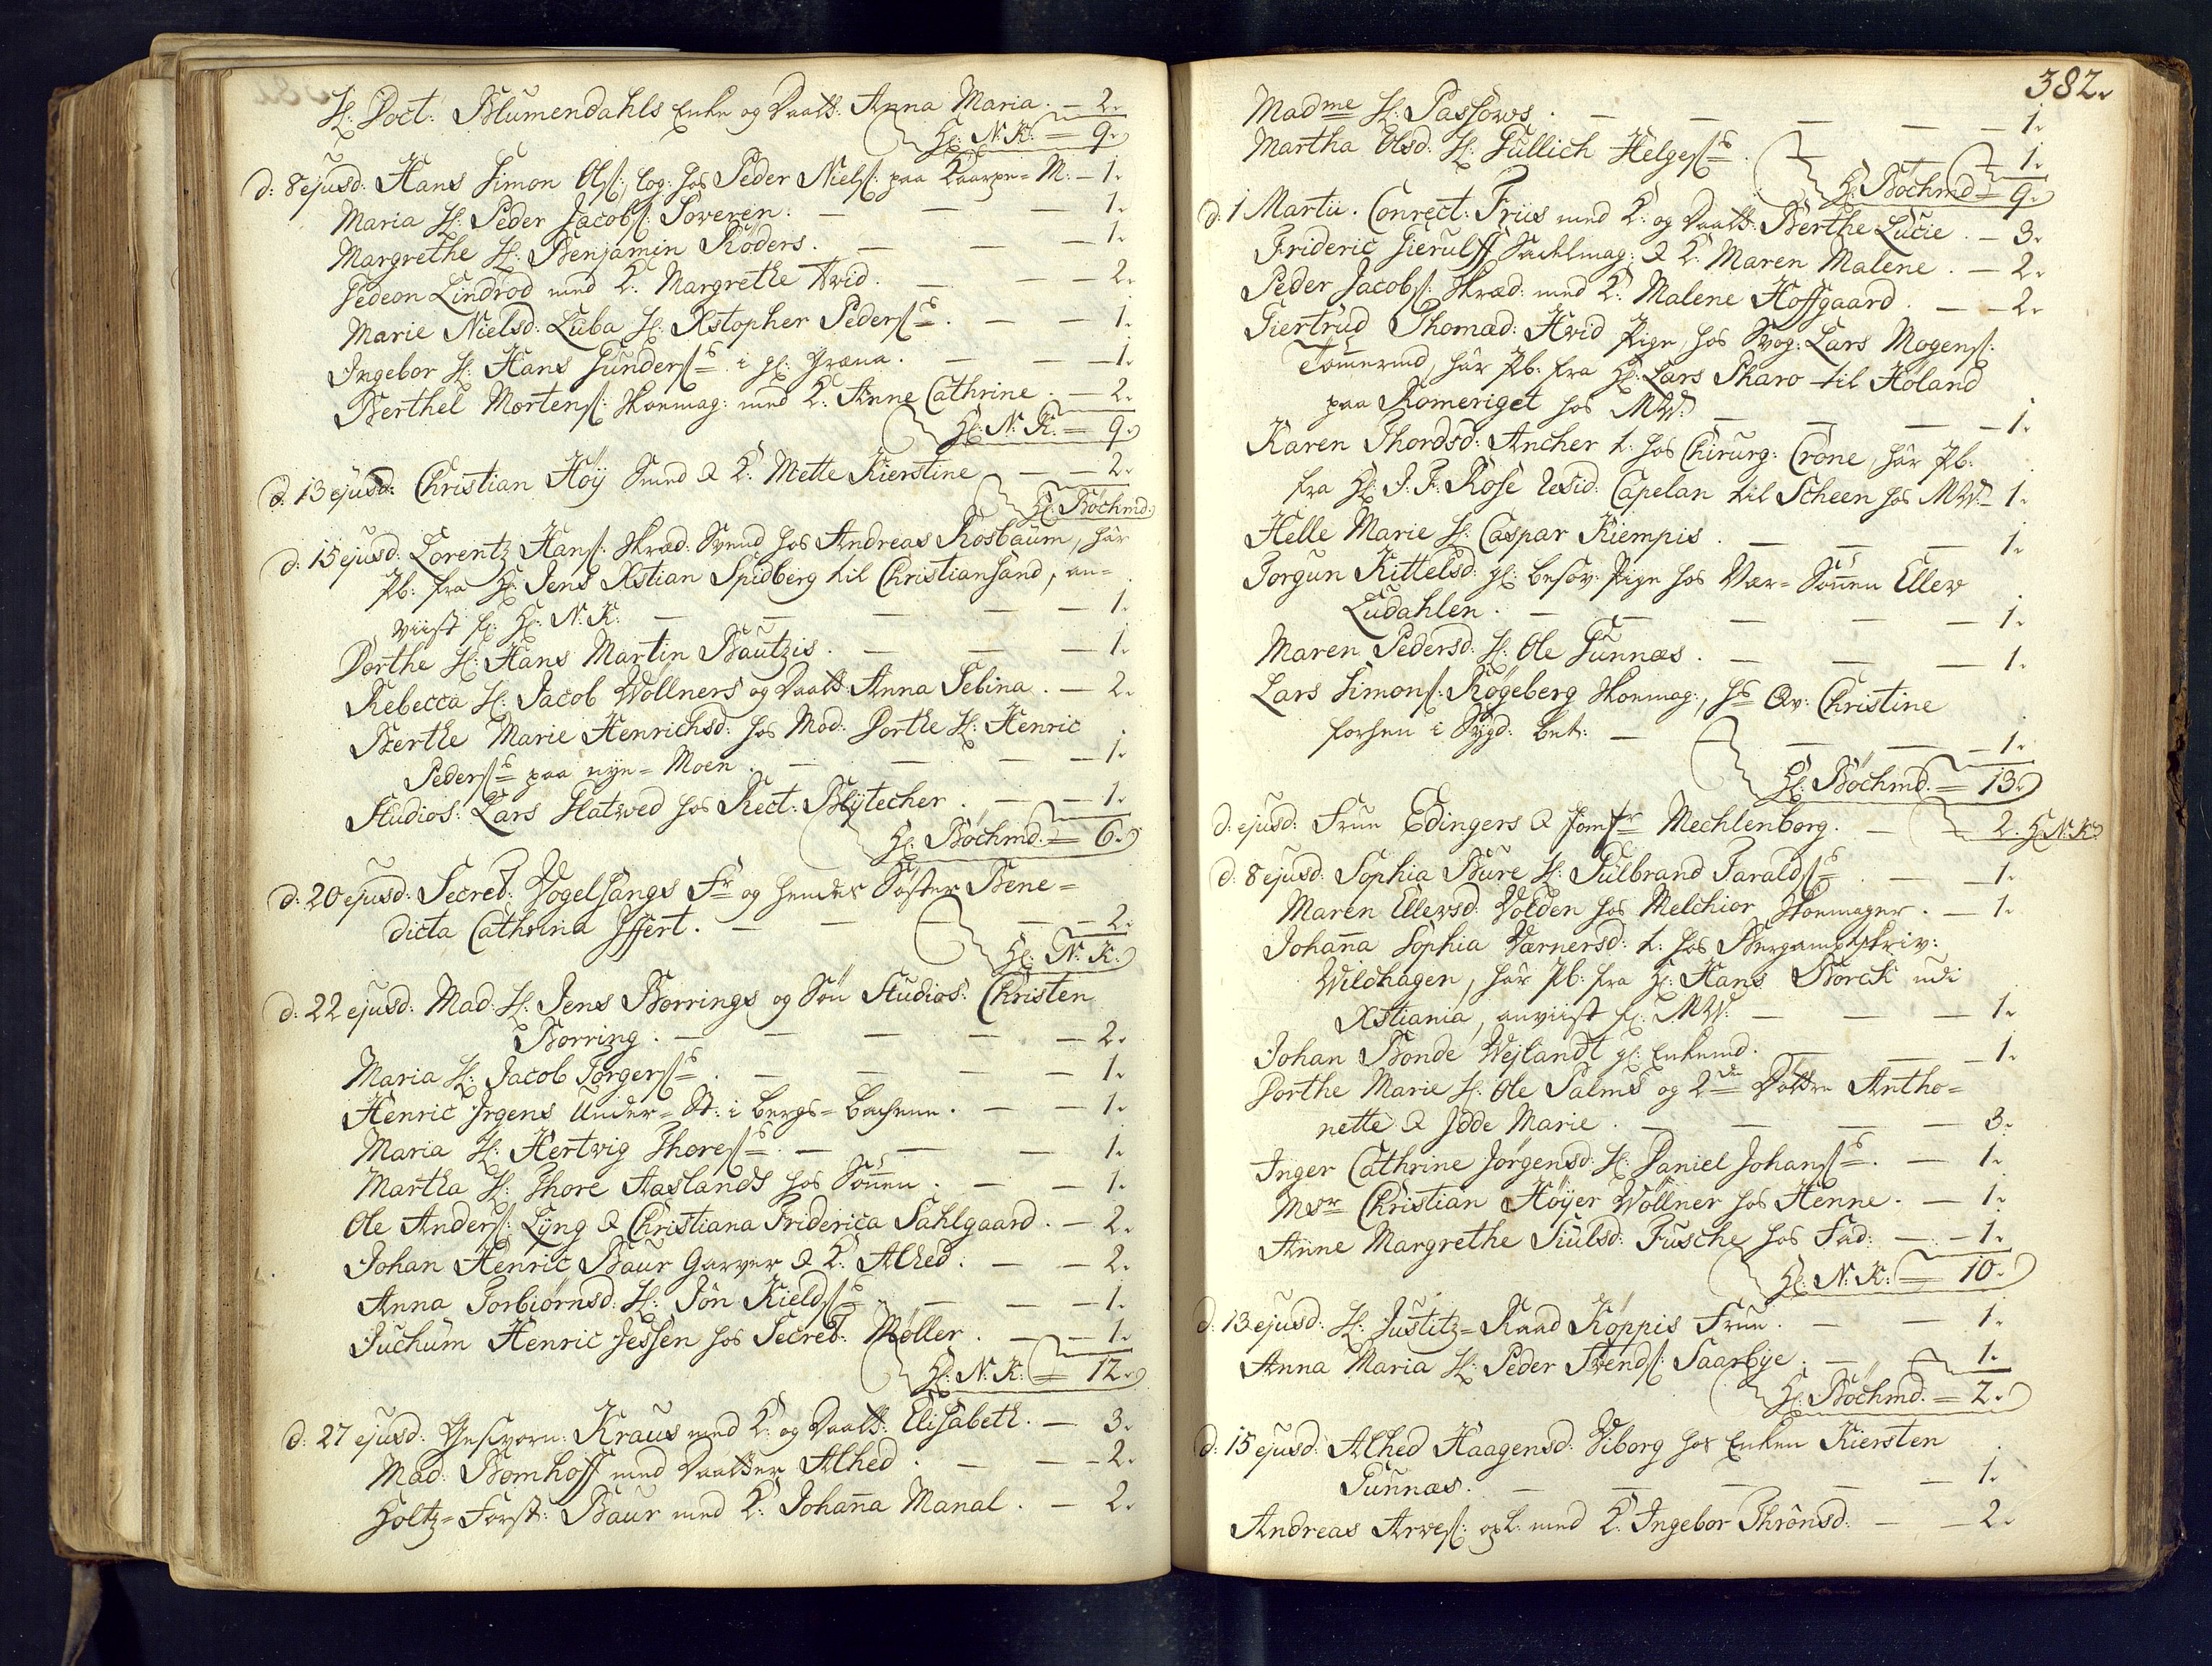 Sl: Doct: Blumendahls Enke og Daatt: Anna Maria. — 2.
Hr: N: K: = 9.
d: 8 ejusd: Hans Simon Ols: log: hos Peder Niels: paa M: — 1.
Maria Sl: Peder Jacobs: Soveren. — — — 1.
Margrethe Sl: Benjamin Röders. — — — 1.
Gedeon Lindrod med K: Margrethe Hvid. — — — 2.
Marie Nielsd: Luba Sl: Xstopher Peders: — — 1.
Ingebor Sl: Hans Gunders: i gl: Græna. — — — 1.
Berthel Mortens: Skoemag: med K: Anne Cathrine. — 2.
Hr: N: K: = 9.
d: 13 ejusd: Christian Höy Smed & K: Mette Kierstine — — 2.
Hr: Böchmd.
d: 15 ejusd: Lorentz Hans: Skræd: Svend hos Andreas Rosbaum, har
Pb: fra Hr: Jens Xstian Spidberg til Christiansand, an-
viist fr: Hr: N: K: — — — — 1.
Dorthe Sl: Hans Martin Bautzis. — — — 1.
Rebecca Sl: Jacob Wöllners og Daatt: Anna Sebina. — 2.
Berthe Marie Henrichsd: hos Mad: Dorthe Sl: Henric
Peders: paa nye-Moen. — — — 1.
Studios: Lars Hatved hos Rect: Blytecher. — — 1.
Hr: Böchmd. = 6.
d: 20 ejusd: Secret: Vogelsangs Fr: og hendes Söster Bene-
dicta Cathrina Iffert. — — — 2.
Hr: N: K:
d: 22 ejusd: Mad: Sl: Jens Borrings og Sön Studios: Christen
Borring. — — — — 2.
Maria Sl: Jacob Torgers: — — — — 1.
Henric Irgens Under-St: i bergs-bachene. — — 1.
Maria Sl: Hertvig Thores: — — — 1.
Martha Sl: Thore Aaslands hos Sönnen. — — 1.
Ole Anders: Lyng & Christiana Friderica Sahlgaard. — 2.
Johan Henric Baur Garver & K: Alhed: — — 2.
Anna Torbiörnsd: Sl: Jön Kields: — — — 1.
Juchum Henric Jessen hos Secret: Möller. — — 1.
Hr: N: K: = 12.
d: 27 ejusd: Geschworn: Kraus med K: og Daatt: Elisabeth. — 3.
Mad: Bomhoff med Daatter Alhed. — — — 2.
Holtz-Först: Baur med K: Johanna Manal. — 2.
382.
Madme Sl: Passows. — — — — 1.
Martha Olsd: Sl: Gullich Helges: — — 1.
Hr: Böchmd = 9.
d: 1 Martii. Conrect: Friis med K: og Daatt: Berthe Lucie. — 3.
Frideric Gierulff Sadelmag: & K: Maren Malene. — 2.
Peder Jacobs: Skræd: med K: Malene Hoffgaard. — — 2.
Giertrud Thomæd: Hvid Pige, hos Svog: Lars Mogens:
Tömermd, har Pb: fra Hr: Lars Pharo til Höland
paa Romeriget hos MW: — — — 1.
Karen Thordsd: Ancher t: hos Chirurg: Crone, har Pb:
fra Hr: J: F: Rose Resid: Capelan til Scheen hos MW: — 1.
Helle Marie Sl: Caspar Kiempis. — — — 1.
Torgun Kittelsd: gl: besov: Pige hos Vær-Sönnen Ellev
Ludahlen. — — — — — 1.
Maren Pedersd: Sl: Ole Gunnæs. — — — 1.
Lars Simons: Rögeberg Skoemag:, hs Qv: Christine
forhen i Sygd: bet: — — — — 1.
Hr: Böchmd. = 13.
d: ejusd: Frue Edingers & Jomfr Mechlenborg. — — 2. Hr: N: K:
d: 8 ejusd: Sophia Bure Sl: Gulbrand Haralds: — — 1.
Maren Ellevsd: Volden hos Melchior Skoemager. — 1.
Johanna Sophia Værnersd: t: hos Bergamtskriv:
Wildhagen, har Pb: fra Hr: Hans Borck udi
Xstiania, anviist fr: MW: — — — 1.
Johan Bonde Wejlandt gl: Enkemd. — — — 1.
Dorthe Marie Sl: Ole Palms og 2de Döttre Antho-
nette & Idde Marie. — — — — 3.
Inger Cathrine Jörgensd: Sl: Daniel Johans: — 1.
Msr Christian Höyer Wöllner hos Henne. — 1.
Anne Margrethe Siulsd: Fusche hos Fad: — — 1.
Hr: N: K: = 10.
d: 13 ejusd: Sl: Justitz-Raad Röppis Frue. — — 1.
Anna Maria Sl: Peder Svends: Saarbye. — 1.
Hr: Böchmd. = 2.
d: 15 ejusd: Alhed Haagensd: Viborg hos Enken Kiersten
Gunnæs. — — — — 1.
Andreas Arves: med K: Ingebor Thrönsd: — — 2.